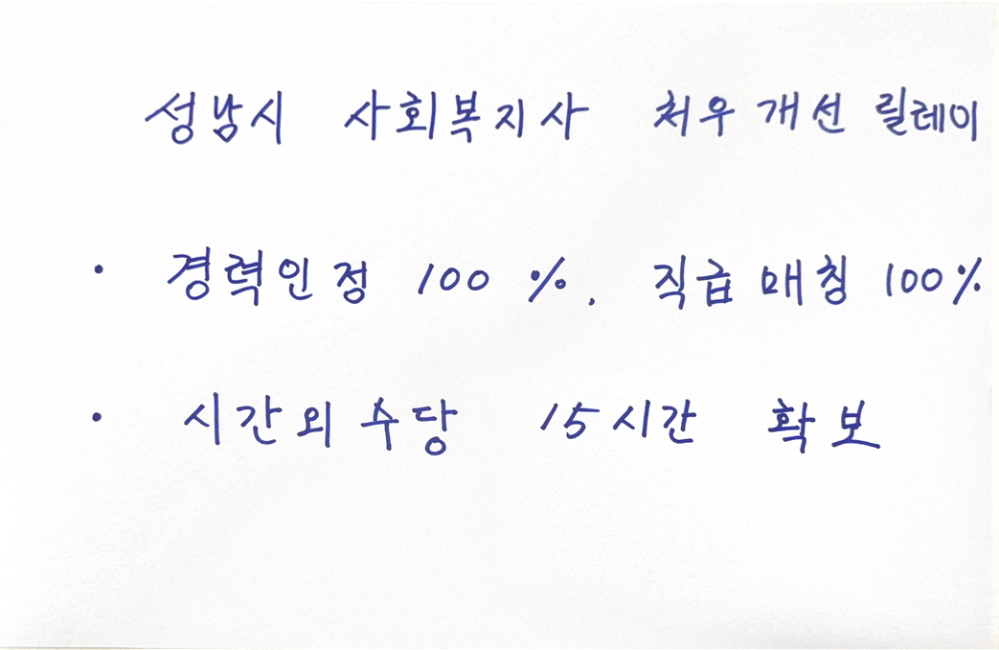 성남시 사회복지사 처우개선 릴레이
· 경력인정 100%, 직급매칭 100%
· 시간외수당 15시간 확보